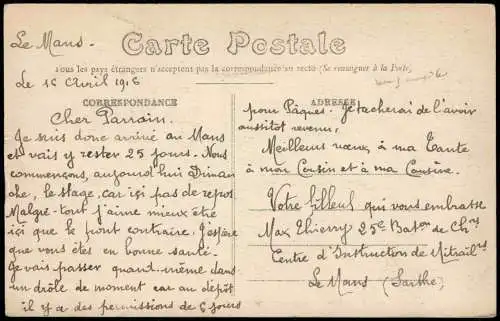 Le Mans -
Carte Postale
Tous les pays étrangers n'acceptent pas la correspondance au recto (Se renseigner à la Poste)
Le 16 Avril 1916
CORRESPONDANCE
Cher Parrain.
Je suis donc arrivé au Mans
et vais y rester 25 jours. Nous
commençons, aujourd'hui Diman
che, le stage, car ici pas de repos
Malgré-tout j'aime mieux être
ici que le pont contraire, J'espère
que vous êtes en bonne santé.
Je vais passer quand-même dans
un drôle de moment car au dépôt
il y a des permissions de 6 jours
ADRESSE
pour Pâques. Je tacherai de l'avoir
aussitot revenu,
Meilleurs vœux à ma Tante
à mon Cousin et à ma Cousine.
Votre filleul qui vous embrasse
Max Thierry 25e Baton de Chrs
Centre d'Instruction de Mitrailrs
Le Mans (Sarthe)